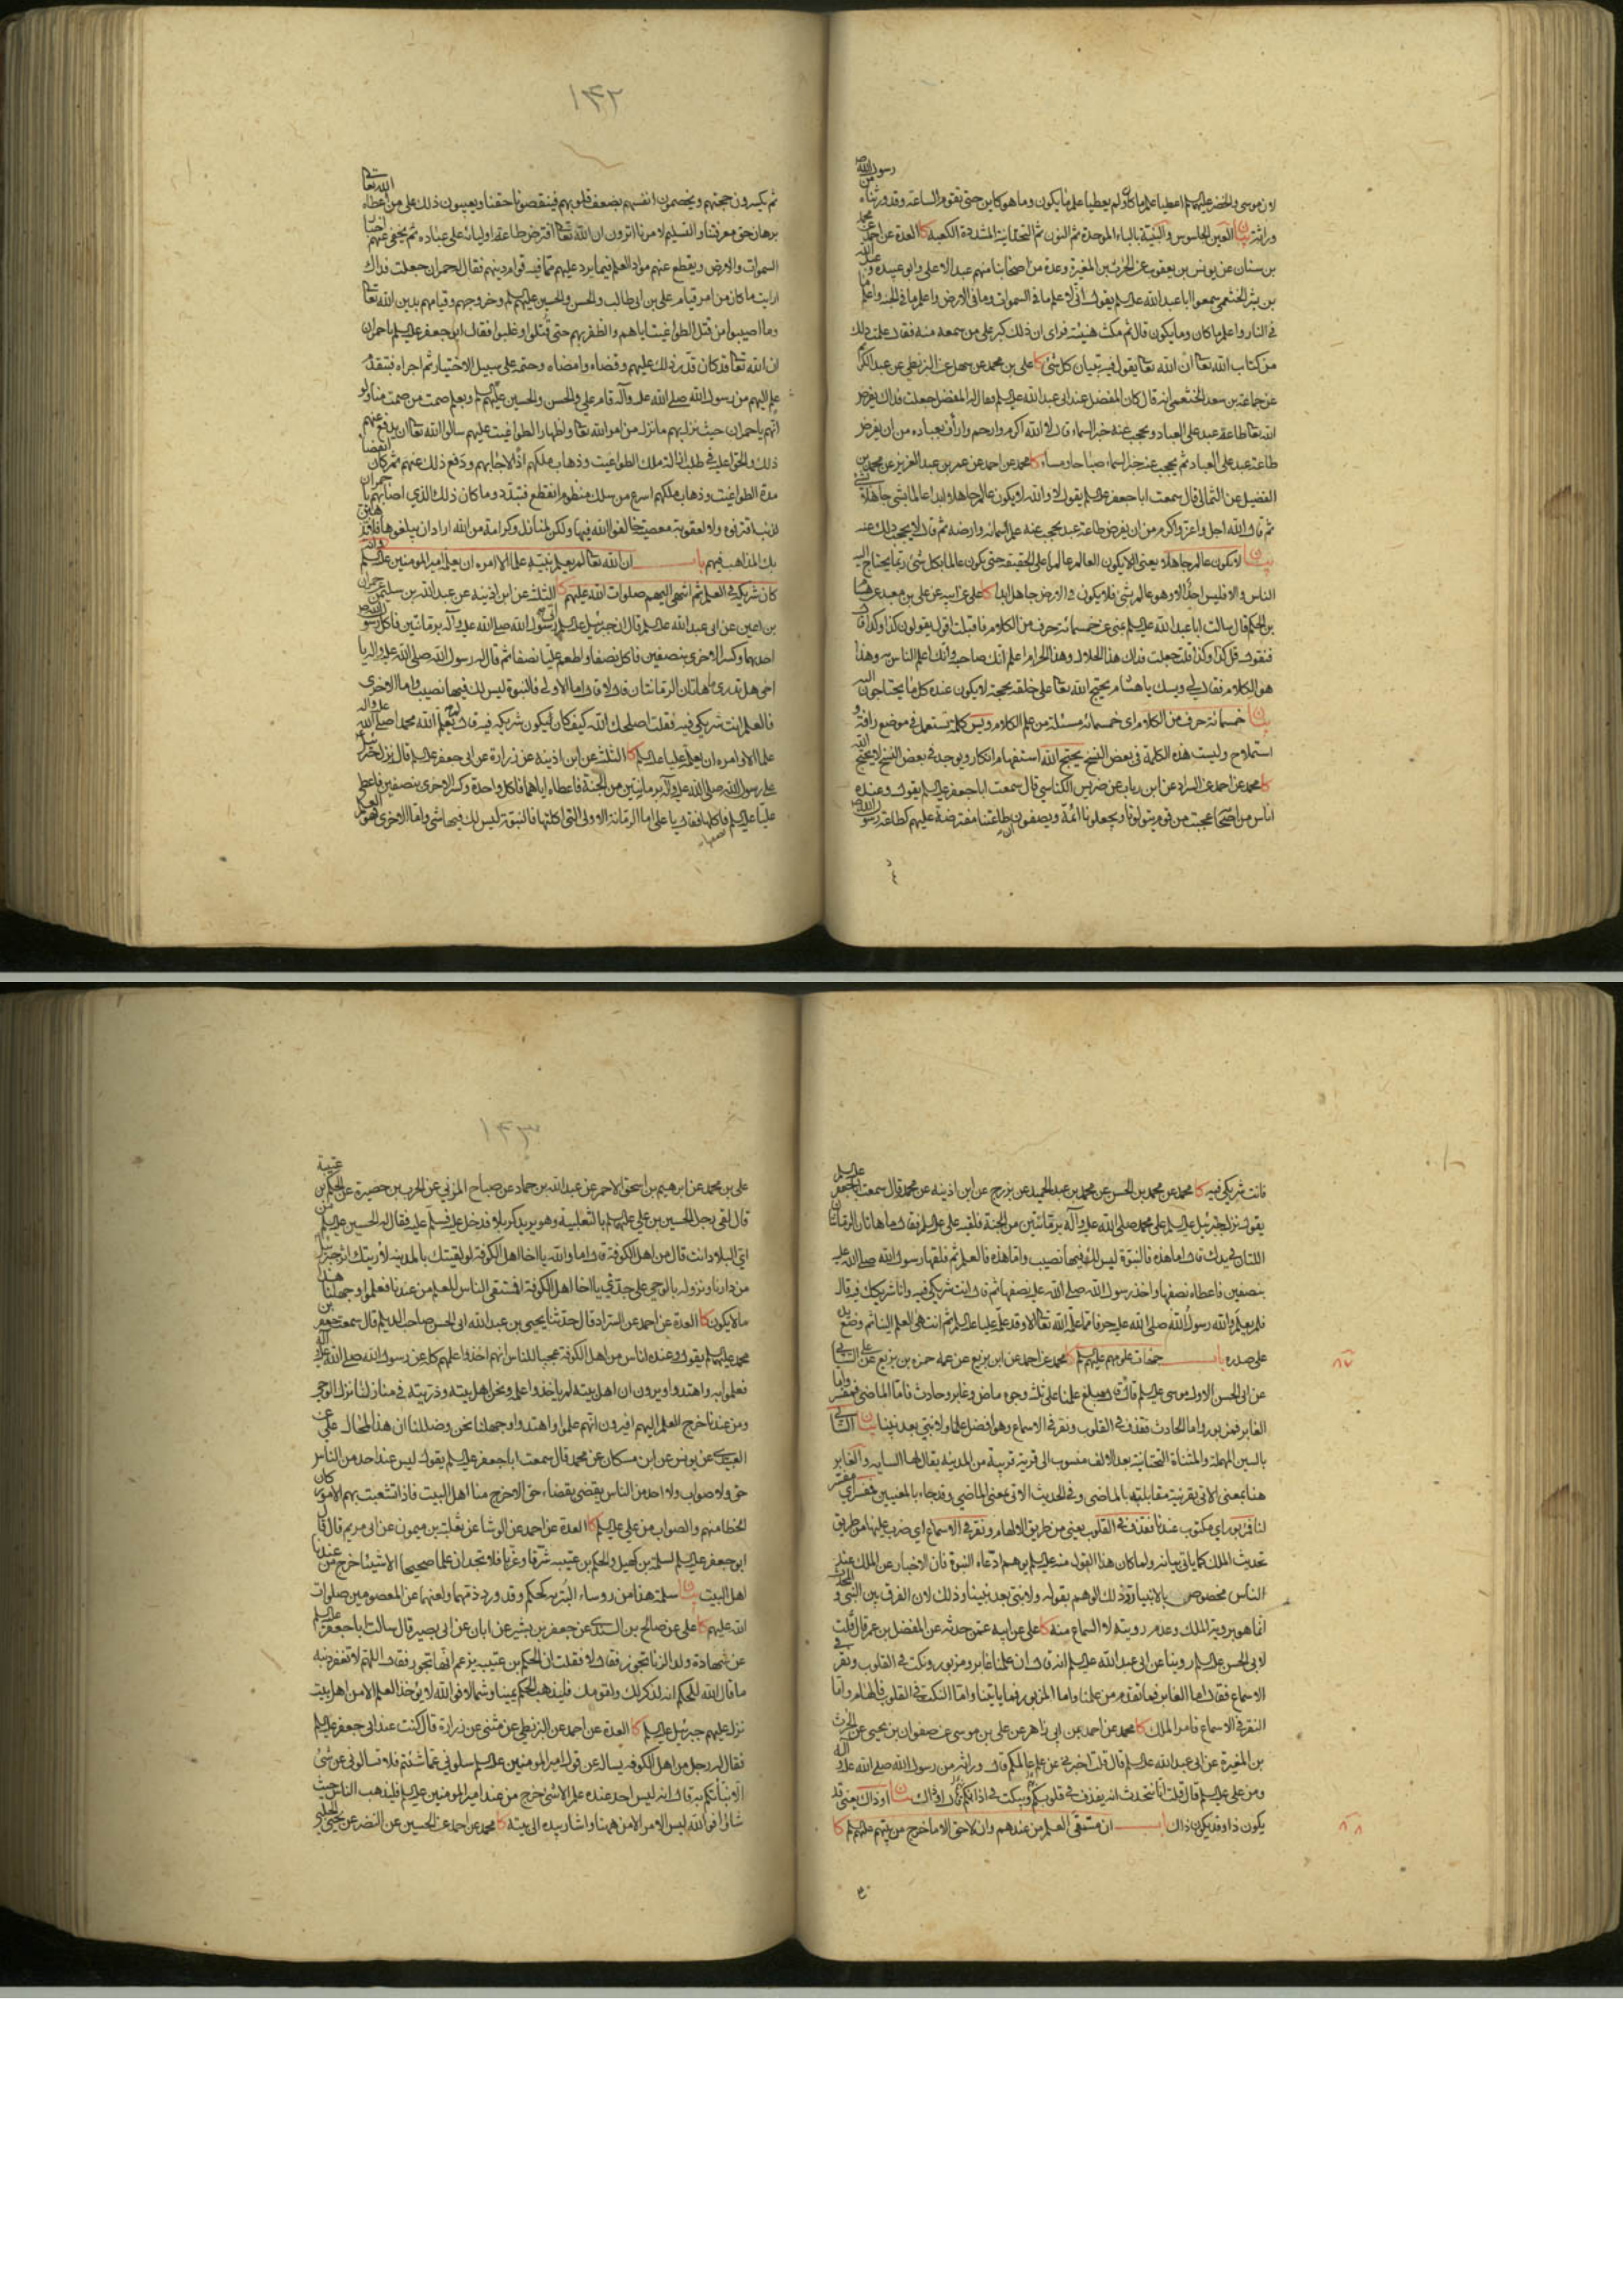 رسول الله
لان موسى والخضر عليهما السلام اعطيا علم ما كان ولم يعطيا علم ما يكون وما هو كاين حتى تقوم الساعة وقد ورثناه من
وراثة بيان العين الجاسوس والبنية بالباء الموحدة ثم النون ثم التحتانية المشددة الكعبة كا العدة عن احمد عن محمد
بن سنان عن يونس بن يعقوب عن الحرث بن المغيرة وعدة من اصحابنا منهم عبد الاعلى وابو عبيدة وعبد الله
بن بشر الخثعمي سمعوا ابا عبد الله عليه السلام يقول اني لاعلم ما في السموات وما في الارض واعلم ما في الجنة واعلم ما
في النار واعلم ما كان وما يكون قال ثم مكث هنيئة فراى ان ذلك كبر على من سمعه منه فقال علمت ذلك
من كتاب الله تعالى ان الله تعالى يقول فيه تبيان كل شئ كا علي بن محمد عن سهل عن البزنطي عن عبد الكريم
عن جماعة بن سعد الخثعمي انه قال كان المفضل عند ابي عبد الله عليه السلام فقال له المفضل جعلت فداك يفرض
الله تعالى طاعة عبد على العباد ويحجب عنه خبر السماء قال لا الله اكرم وارحم وارأف بعباده من ان يفرض
طاعة عبد على العباد ثم يحجب عنه خبر السماء صباحا ومساء كا محمد عن احمد عن عمر بن عبد العزيز عن محمد بن
الفضيل عن الثمالي قال سمعت ابا جعفر عليه السلام يقول لا والله لا يكون عالم جاهلا ابدا عالما بشئ جاهلا بشئ
ثم قال الله اجل واعز واكرم من ان يفرض طاعة عبد يحجب عنه علم سمائه وارضه ثم قال لا يحجب ذلك عنه
بيان لا يكون عالم جاهلا يعني لا يكون العالم عالما على الحقيقة حتى يكون عالما بكل شئ ربما يحتاج اليه
الناس والا فليس احد الا وهو عالم بشئ فلا يكون في الارض جاهل ابدا كا علي عن ابيه عن علي بن معبد عن هشام
بن الحكم قال سالت ابا عبد الله عليه السلام بمنى عن خمسمائة حرف من الكلام فاقبلت اقول يقولون كذا وكذا قال
فيقول قل كذا وكذا قلت جعلت فداك هذا الحلال وهذا الحرام اعلم انك صاحبه وانك اعلم الناس به وهذا
هو الكلام فقال لي ويسك يا هشام يحتج الله تعالى على خلقه بحجة لا يكون عنده كل ما يحتاجون اليه
بيان خمسمائة حرف من الكلام اى خمسمائة مسئلة من علم الكلام وويس كلمة تستعمل في موضع رافة و
استملاح وليست هذه الكلمة في بعض النسخ يحتج الله استفهام انكار ويوجد في بعض النسخ لا يحتج الله
كا محمد عن احمد عن السراد عن ابن رئاب عن ضريس الكناسي قال سمعت ابا جعفر عليه السلام يقول وعنده
اناس من اصحابه عجبت من قوم يتولونا ويجعلونا ائمة ويصفون ان طاعتنا مفترضة عليهم كطاعة رسول الله
١٤٢
ثم يكسرون حجتهم ويخصمون انفسهم بضعف قلوبهم فينقصونا حقنا ويعيبون ذلك على من اعطاه الله تعالى
برهان حق معرفتنا والتسليم لامرنا اترون ان الله تعالى افترض طاعة اوليائه على عباده ثم يخفي عنهم اخبار
السموات والارض ويقطع عنهم مواد العلم فيما يرد عليهم مما فيه قوام دينهم فقال له حمران جعلت فداك
ارايت ما كان من امر قيام علي بن ابي طالب والحسن والحسين عليهم السلم وخروجهم وقيامهم بدين الله تعالى
وما اصيبوا من قتل الطواغيت اياهم والظفر بهم حتى قتلوا وغلبوا فقال ابو جعفر عليه السلم يا حمران
ان الله تعالى قد كان قدر ذلك عليهم وقضاه وامضاه وحتمه على سبيل الاختيار ثم اجراه فبتقدم
علم اليهم من رسول الله صلى الله عليه وآله قام علي والحسن والحسين عليهم السلم وبعلم صمت من صمت منا ولو
انهم يا حمران حيث نزل بهم ما نزل من امر الله تعالى واظهار الطواغيت عليهم سالوا الله تعالى ان يدفع عنهم
ذلك والحوا عليه في طلب ازالة ملك الطواغيت وذهاب ملكهم اذا لاجابهم ودفع ذلك عنهم ثم كان انقضاء
مدة الطواغيت وذهاب ملكهم اسرع من سلك منظوم انقطع فتبدد وما كان ذلك الذي اصابهم يا حمران
لذنب اقترفوه ولا لعقوبة معصية خالفوا الله فيها ولكن لمنازل وكرامة من الله اراد ان يبلغوها فلا تذهبن
بك المذاهب فيهم باب ان الله تعالى لم يعلم نبيه علما الا امره ان يعلمه امير المؤمنين عليه السلم وانه
كان شريكه في العلم ثم انتهى اليهم صلوات الله عليهم كا الثلثة عن ابن اذينة عن عبد الله بن سليمن عن حمران
بن اعين عن ابي عبد الله عليه السلم قال ان جبرئيل عليه السلم اتى رسول الله صلى الله عليه وآله برمانتين فاكل رسول الله
احديهما وكسر الاخرى بنصفين فاكل نصفا واطعم عليا نصفا ثم قال له رسول الله صلى الله عليه واله يا
اخي هل تدري ما هاتان الرمانتان قال لا قال اما الاولى فالنبوة ليس لك فيها نصيب واما الاخرى
فالعلم انت شريكي فيه فقلت اصلحك الله كيف كان يكون شريكه فيه قال لم يعلم الله محمدا صلى الله عليه واله
علما الا وامره ان يعلمه عليا عليه السلم كا الثلثة عن ابن اذينة عن زرارة عن ابي جعفر عليه السلم قال نزل جبرئيل
على رسول الله صلى الله عليه وآله برمانتين من الجنة فاعطاه اياهما فاكل واحدة وكسر الاخرى بنصفين فاعطى
عليا عليه السلم نصفها فاكلها فقال يا علي اما الرمانة الاولى التي اكلتها فالنبوة ليس لك فيها شئ واما الاخرى فهو العلم
فانت شريكي فيه كا محمد عن محمد بن الحسن عن محمد بن عبد الحميد عن بزرج عن ابن اذينة عن محمد قال سمعت ابا جعفر عليه السلم
يقول نزل جبرئيل عليه السلم على محمد صلى الله عليه وآله برمانتين من الجنة فلقيه علي عليه السلم فقال ما هاتان الرمانتان
اللتان في يدك قال اما هذه فالنبوة ليس لك فيها نصيب واما هذه فالعلم ثم فلقها رسول الله صلى الله عليه
بنصفين فاعطاه نصفها واخذ رسول الله صلى الله عليه نصفها ثم قال انت شريكي فيه وانا شريكك فيه قال
فلم يعلم والله رسول الله صلى الله عليه حرفا مما علمه الله تعالى الا وقد علمه عليا عليه السلم ثم انتهى العلم الينا ثم وضع يده
على صدره باب جهات علومهم عليهم السلم كا محمد عن احمد عن ابن بزيع عن عمه حمزة بن بزيع عن علي السائي
عن ابي الحسن الاول موسى عليه السلم قال قال مبلغ علمنا على ثلثة وجوه ماض وغابر وحادث فاما الماضي فمفسر واما
الغابر فمزبور واما الحادث فقذف في القلوب ونقر في الاسماع وهو افضل علمنا ولا نبي بعد نبينا بيان السائي
بالسين المهملة والمثناة التحتانية بعد الالف منسوب الى قرية قريبة من المدينة يقال لها الساية والغابر
هنا بمعنى الاتي بقرينة مقابلته بالماضي وفي الحديث الاتي بمعنى الماضي وقد جاء بالمعنيين مفسر اى مفسر
لنا مزبور اى مكتوب عندنا فقذف في القلوب يعني من طريق الالهام ونقر في الاسماع اى ضرب عليها من طريق
تحديث الملك كما ياتي بيانه ولما كان هذا القول منه عليه السلم يوهم ادعاء النبوة فان الاخبار عن الملك عند
الناس مخصوص بالانبياء رد ذلك الوهم بقوله ولا نبي بعد نبينا وذلك لان الفرق بين النبي والمحدث
انما هو برؤية الملك وعدم رويته لا السماع منه كا علي عن ابيه عمن حدثه عن المفضل بن عمر قال قلت
لابي الحسن عليه السلم روينا عن ابي عبد الله عليه السلم انه قال ان علمنا غابر ومزبور ونكت في القلوب ونقر في
الاسماع فقال اما الغابر فما تقدم من علمنا واما المزبور فما ياتينا واما النكت في القلوب فالهام واما
النقر في الاسماع فامر الملك كا محمد عن احمد بن ابي زاهر عن علي بن موسى عن صفوان بن يحيى عن الحرث
بن المغيرة عن ابي عبد الله عليه السلم قال قلت اخبرني عن علم عالمكم قال وراثة من رسول الله صلى الله عليه وآله
ومن علي عليه السلم قال قلت انا نتحدث انه يقذف في قلوبكم وينكت في اذانكم قال او ذاك بيان او ذاك يعني قد
يكون ذا وقد يكون ذاك باب ان مستقى العلم من عندهم وان لا حق الا ما خرج من بيتهم عليهم السلم كا
٨٧
٨٨
١٤٣
علي بن محمد عن ابرهيم بن اسحق الاحمر عن عبد الله بن حماد عن صباح المزني عن الحرث بن حصيرة عن الحكم بن عتيبة
قال لقي رجل الحسين بن علي عليهما السلم بالثعلبية وهو يريد كربلا فدخل عليه فسلم عليه فقال له الحسين عليه السلم من
اي البلاد انت قال من اهل الكوفة قال اما والله يا اخا اهل الكوفة لو لقيتك بالمدينة لأريتك اثر جبرئيل
من دارنا ونزوله بالوحي على جدي يا اخا اهل الكوفة افستقى الناس العلم من عندنا فعلموا وجهلنا هذا
ما لا يكون كا العدة عن احمد عن السراد قال حدثنا يحيى بن عبد الله ابي الحسن صاحب الديلم قال سمعت جعفر بن
محمد عليهما السلم يقول وعنده اناس من اهل الكوفة عجبا للناس انهم اخذوا علمهم كله عن رسول الله صلى الله عليه وآله
فعملوا به واهتدوا ويرون ان اهل بيته لم ياخذوا علمه ونحن اهل بيته وذريته في منازلنا نزل الوحي
ومن عندنا خرج العلم اليهم افيرون انهم علموا واهتدوا وجهلنا نحن وضللنا ان هذا لمحال علي عن
العبيدي عن يونس عن ابن مسكان عن محمد قال سمعت ابا جعفر عليه السلم يقول ليس عند احد من الناس
حق ولا صواب ولا احد من الناس يقضي بقضاء حق الا خرج منا اهل البيت فاذا تشعبت بهم الامور كان
الخطا منهم والصواب من علي عليه السلم كا العدة عن احمد عن الوشا عن ثعلبة بن ميمون عن ابي مريم قال قال
ابو جعفر عليه السلم لسلمة بن كهيل والحكم بن عتيبة شرقا وغربا فلا تجدان علما صحيحا الا شيئا خرج من عندنا
اهل البيت بيان سلمة هذا من روساء البترية كحكم وقد ورد ذمهما ولعنهما عن المعصومين صلوات
الله عليهم كا علي عن صالح بن السندي عن جعفر بن بشير عن ابان عن ابي بصير قال سالت ابا جعفر عليه السلم
عن شهادة ولد الزنا تجوز فقال لا فقلت ان الحكم بن عتيبة يزعم انها تجوز فقال اللهم لا تغفر ذنبه
ما قال الله للحكم انه لذكر لك ولقومك فليذهب الحكم يمينا وشمالا فوالله لا يؤخذ العلم الا من اهل بيت
نزل عليهم جبرئيل عليه السلم كا العدة عن احمد عن البزنطي عن مثنى عن زرارة قال كنت عند ابي جعفر عليه السلم
فقال له رجل من اهل الكوفة يساله عن قول امير المؤمنين عليه السلم سلوني عما شئتم فلا تسالوني عن شئ
الا نبأتكم به قال انه ليس احد عنده علم الا شئ خرج من عند امير المؤمنين عليه السلم فليذهب الناس حيث
شاؤا فوالله ليس الامر الا من ههنا واشار بيده الى بيته كا محمد عن احمد عن الحسين عن النضر عن يحيى الحلبي